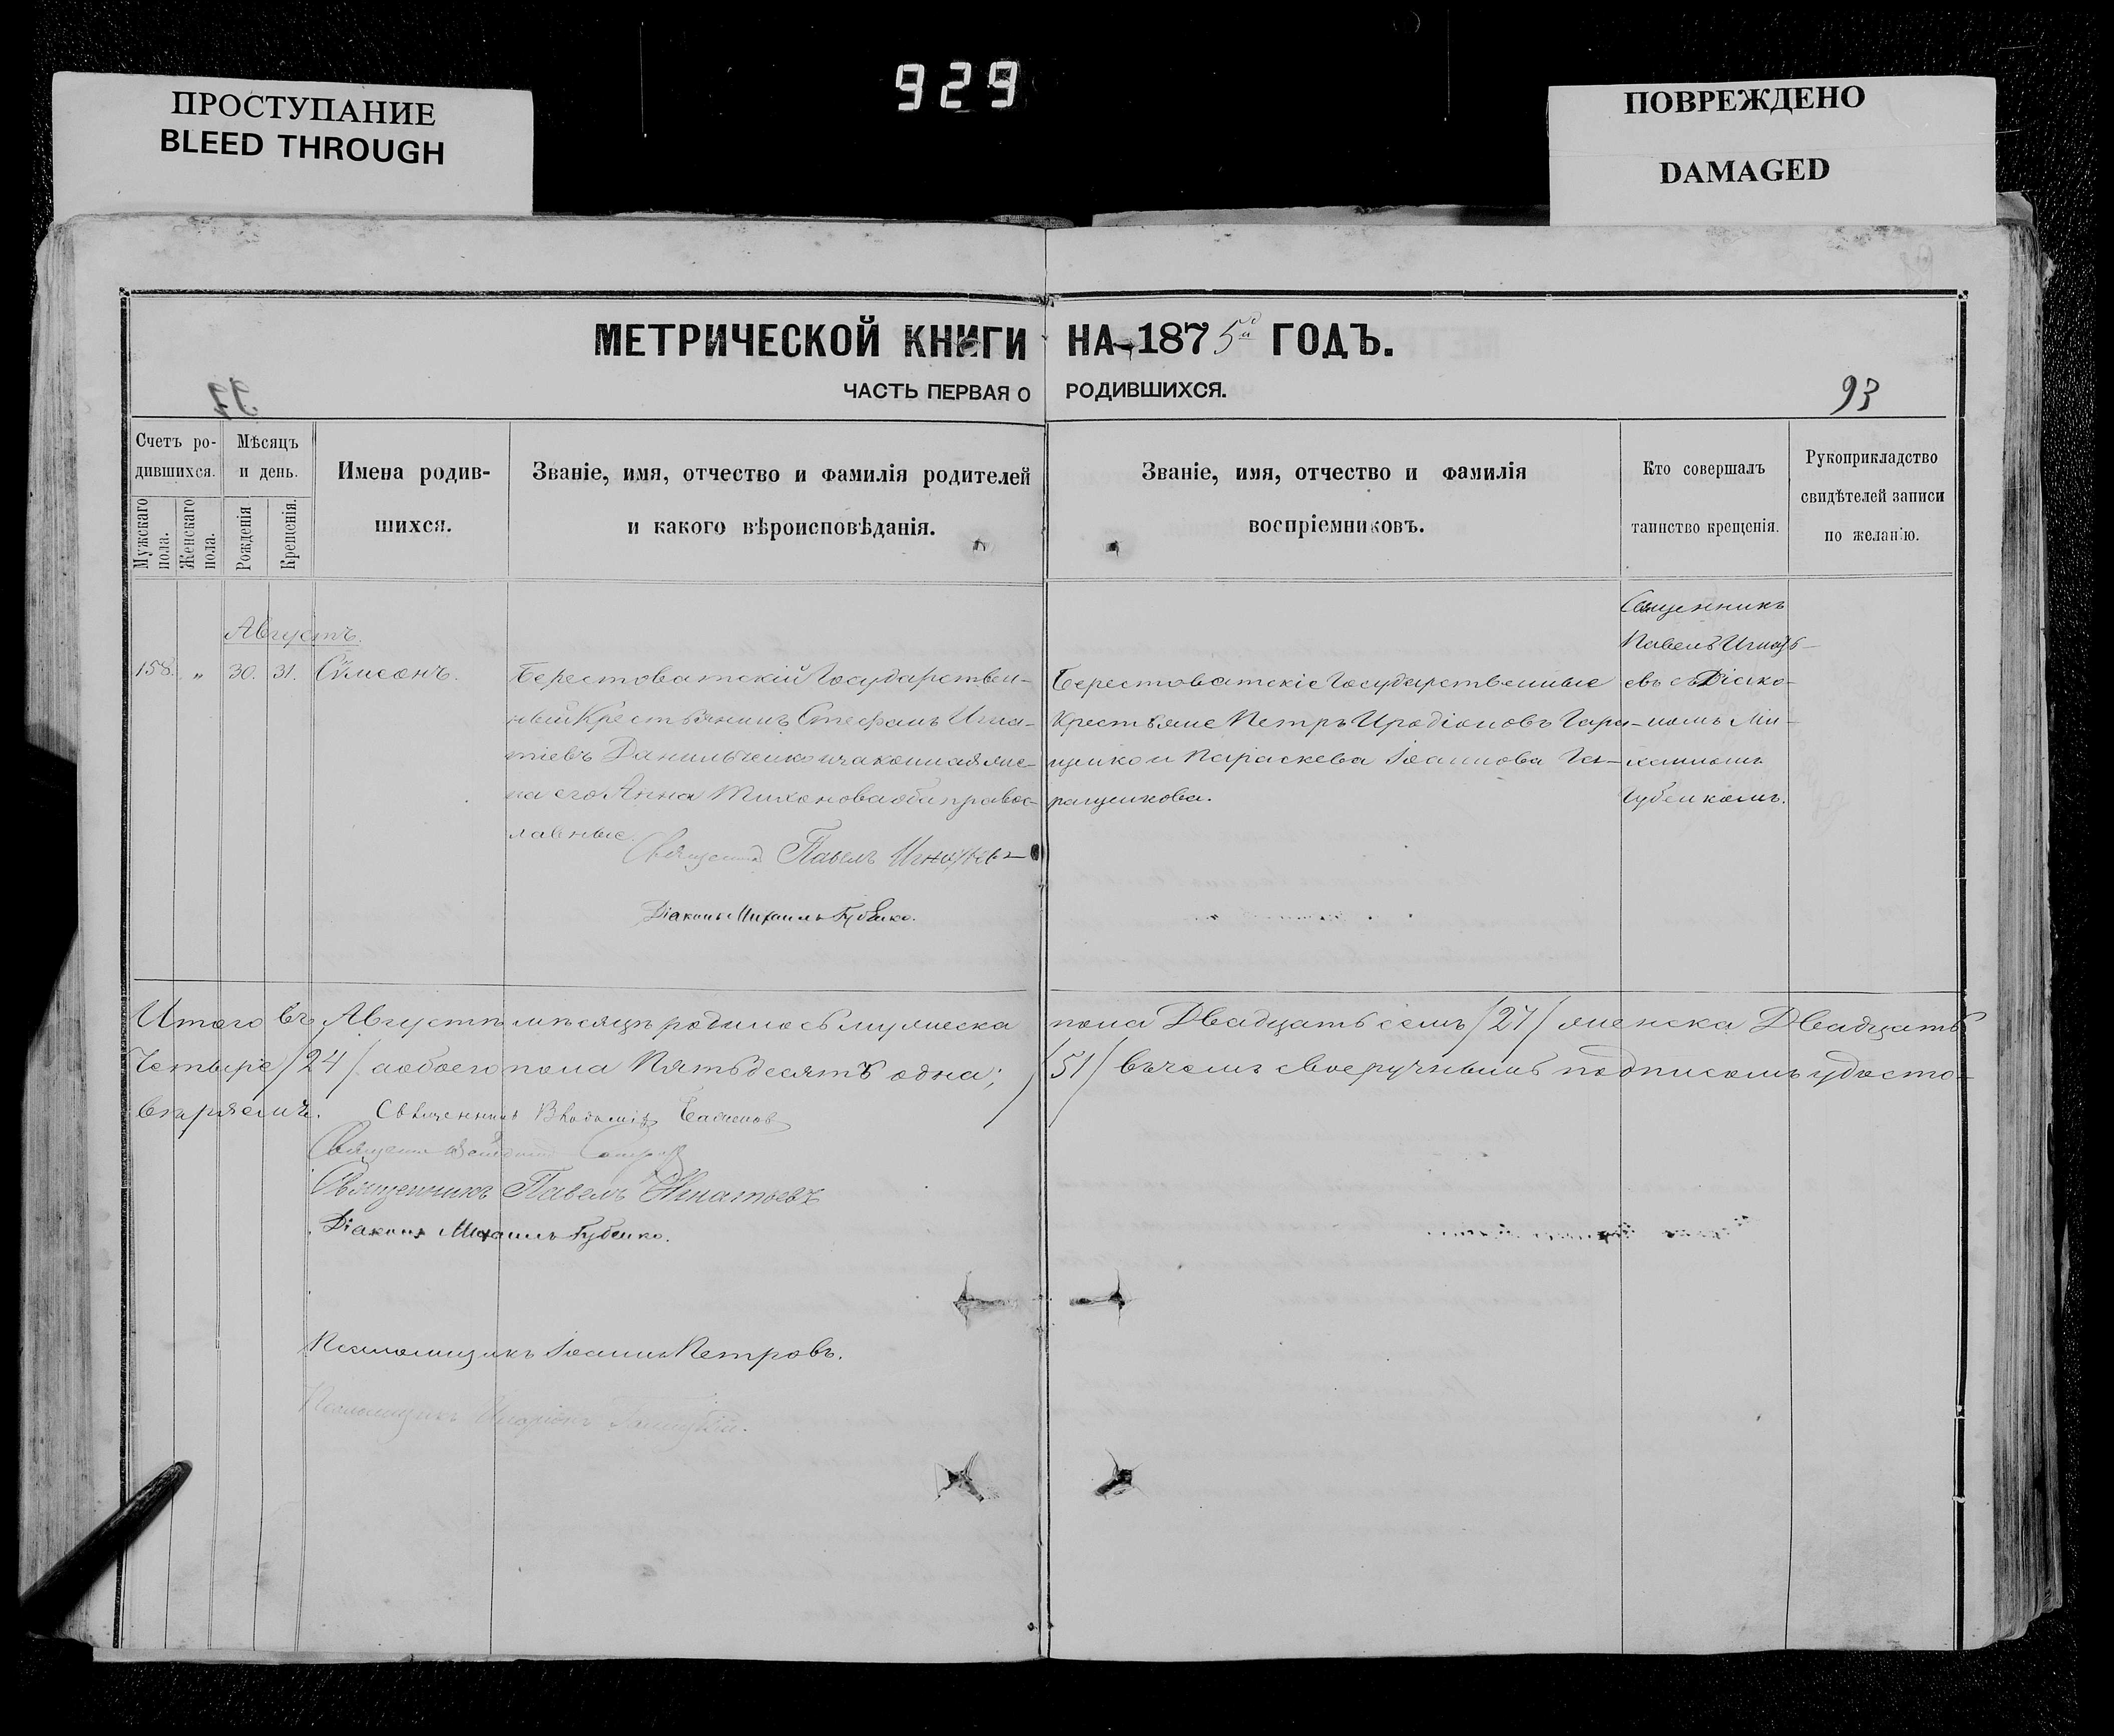 929
ПРОСТУПАНИЕ
BLEED THROUGH
ПОВРЕЖДЕНО
DAMAGED
МЕТРИЧЕСКОЙ КНИГИ НА 1875й ГОДЪ.
ЧАСТЬ ПЕРВАЯ О РОДИВШИХСЯ.
93
Счетъ ро-
дившихся.
Мужскаго пола.
Женскаго пола.
Мѣсяцъ
и день.
Рожденія
Крещенія.
Имена родив-
шихся.
Званіе, имя, отчество и фамилія родителей
и какого вѣроисповѣданія.
Званіе, имя, отчество и фамилія
воспріемниковъ.
Кто совершалъ
таинство крещенія.
Рукоприкладство
свидѣтелей записи
по желанію.
Августъ.
158. " 30. 31. Сѵмеонъ.
Берестоватскій Государствен-
ный Крестьянинъ Стефанъ Игна-
тіевъ Данильченко и законная же-
на его Анна Тихонова оба правос-
лавные.
Священникъ Павелъ Игнатьевъ
Діаконъ Михаилъ Губенко.
Берестоватскіе Государственные
Крестьяне Петръ Иродіоновъ Гара-
щенко и Параскева Іоаннова Га-
ращенкова.
Священникъ
Павелъ Игнать-
евъ съ Діако-
номъ Ми-
хаиломъ
Губенкомъ.
Итого въ Августѣ мѣсяцѣ родилось мужеска пола Двадцать семь /27/ женска Двадцать
Четыре /24/ а обоего пола Пятьдесятъ одна; /51/ въ чемъ своеручнымъ подписомъ удосто-
вѣряемъ. Священникъ
Священникъ
Священникъ Павелъ Игнатьевъ
Діаконъ Михаилъ Губенко.
Псаломщикъ Іоаннъ Петровъ.
Псаломщикъ Иларіонъ